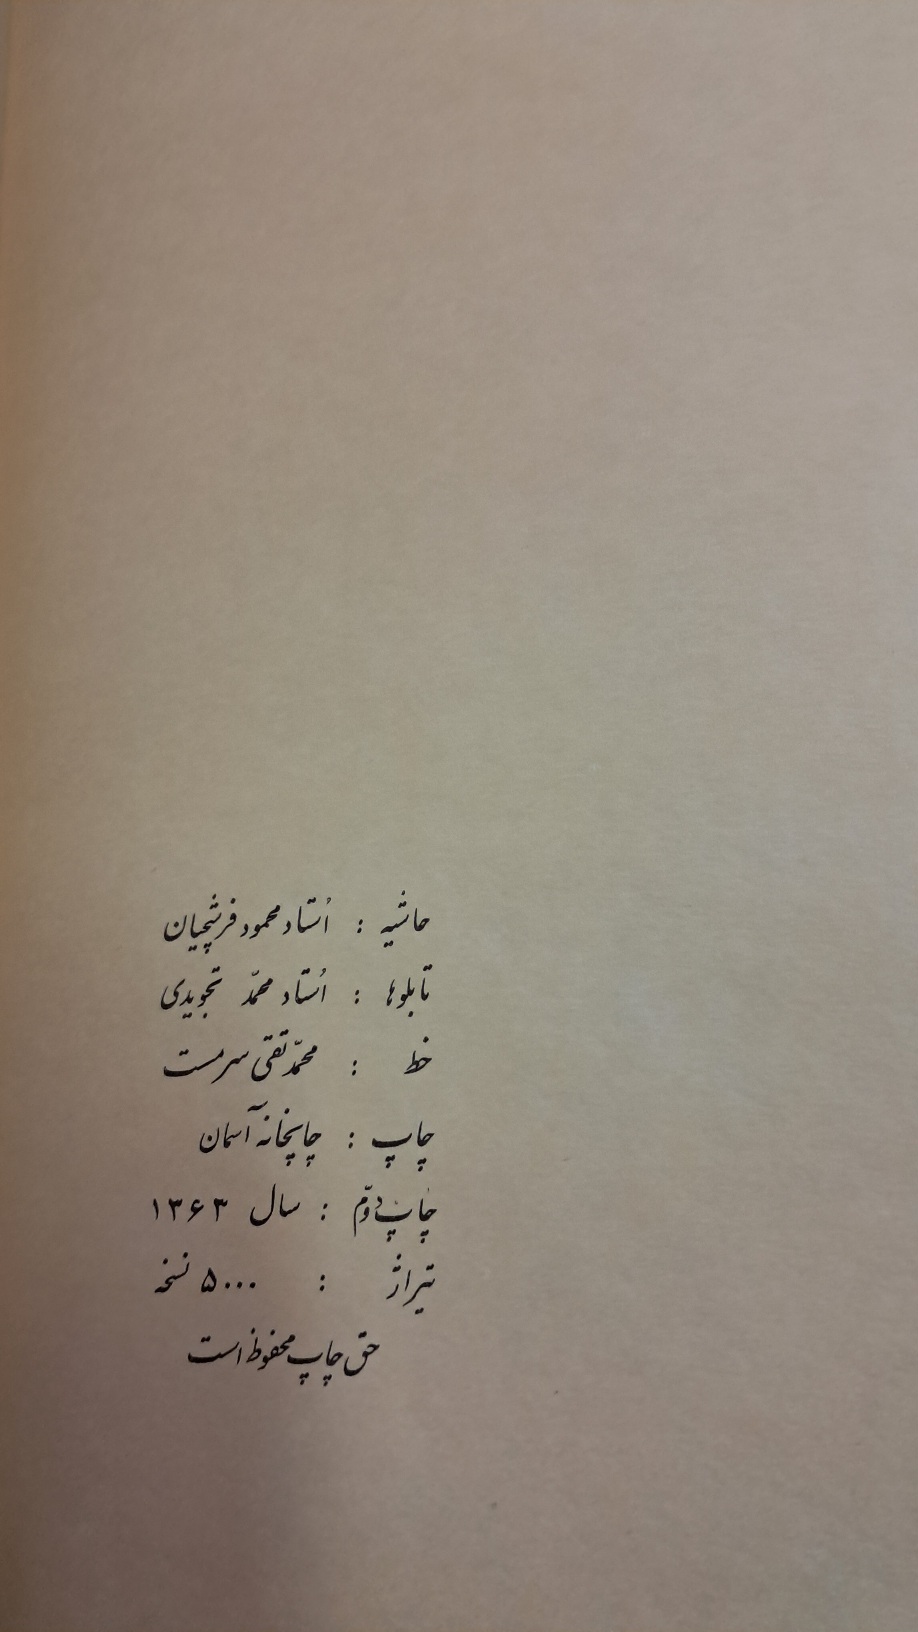 حاشیه : اُستاد محمود فرشچیان
تابلوها : اُستاد محمّد تجویدی
خط : محمّد تقی سرمست
چاپ : چاپخانه آسمان
چاپ دوّم : سال ۱۳۶۳
تیراژ : ۵۰۰۰ نسخه
حق چاپ محفوظ است